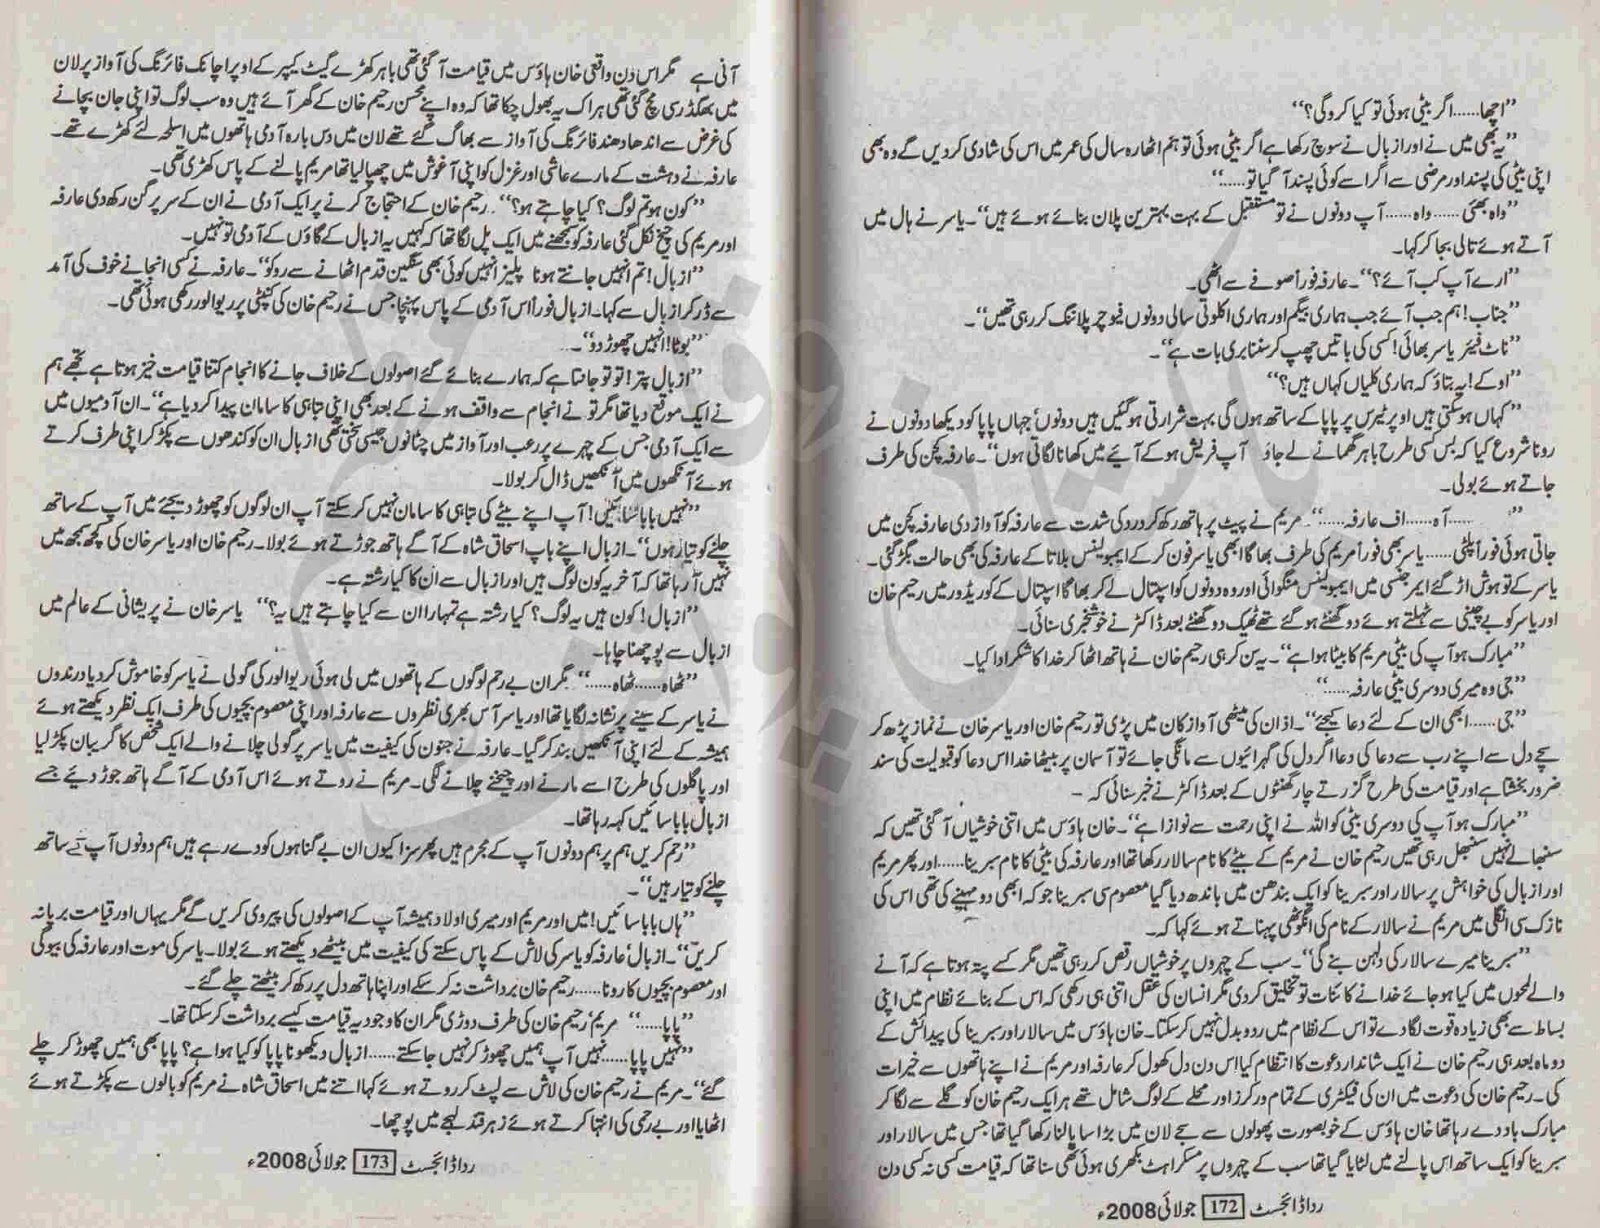 ”اچھا......اگر بیٹی ہوئی تو کیا کرو گی؟“
”یہ بھی میں نے اور ازبال نے سوچ رکھا ہے اگر بیٹی ہوئی تو ہم اٹھارہ سال کی عمر میں اس کی شادی کردیں گے وہ بھی
اپنی بیٹی کی پسند اور مرضی سے اگر اسے کوئی پسند آ گیا تو......“
”واہ بھئی......واہ......آپ دونوں نے تو مستقبل کے بہت بہترین پلان بنائے ہوئے ہیں“۔ یاسر نے ہال میں
آتے ہوئے تالی بجا کر کہا۔
”ارے آپ کب آئے؟“۔ عارفہ فوراً صوفے سے اٹھی۔
”جناب! ہم جب آئے جب ہماری بیگم اور ہماری اکلوتی سالی دونوں فیوچر پلاننگ کر رہی تھیں“۔
”ناٹ فیئر یاسر بھائی! کسی کی باتیں چھپ کر سننا بری بات ہے“۔
”اوکے! یہ بتاؤ کہ ہماری کلیاں کہاں ہیں؟“
”کہاں ہو سکتی ہیں اوپر ٹیرس پر پاپا کے ساتھ ہوں گی بہت شرارتی ہو گئیں ہیں دونوں جہاں پاپا کو دیکھا دونوں نے
رونا شروع کیا کہ بس کسی طرح باہر گھمانے لے جاؤ آپ فریش ہو کے آئیے میں کھانا لگاتی ہوں“۔ عارفہ کچن کی طرف
جاتے ہوئے بولی۔
”......آہ......اف عارفہ......“۔ مریم نے پیٹ پر ہاتھ رکھ کر درد کی شدت سے عارفہ کو آواز دی عارفہ کچن میں
جاتی ہوئی فوراً پلٹی......یاسر بھی فوراً مریم کی طرف بھاگا ابھی یاسر فون کر کے ایمبولینس بلاتا کے عارفہ کی بھی حالت بگڑ گئی۔
یاسر کے تو ہوش اڑ گئے ایمرجنسی میں ایمبولینس منگوائی اور وہ دونوں کو اسپتال لے کر بھاگا اسپتال کے کوریڈور میں رحیم خان
اور یاسر کو بے چینی سے ٹہلتے ہوئے دو گھنٹے ہو گئے تھے ٹھیک دو گھنٹے بعد ڈاکٹر نے خوشخبری سنائی۔
”مبارک ہو آپ کی بیٹی مریم کا بیٹا ہوا ہے“۔ یہ سن کر ہی رحیم خان نے ہاتھ اٹھا کر خدا کا شکر ادا کیا۔
”جی وہ میری دوسری بیٹی عارفہ......“
”جی......ابھی ان کے لئے دعا کیجئے“۔ اذان کی میٹھی آواز کان میں پڑی تو رحیم خان اور یاسر خان نے نماز پڑھ کر
سچے دل سے اپنے رب سے دعا کی دعا اگر دل کی گہرائیوں سے مانگی جائے تو آسمان پر بیٹھا خدا اس دعا کو قبولیت کی سند
ضرور بخشتا ہے اور قیامت کی طرح گزرتے چار گھنٹوں کے بعد ڈاکٹر نے خبر سنائی کہ۔
”مبارک ہو آپ کی دوسری بیٹی کو اللہ نے اپنی رحمت سے نوازا ہے“۔ خان ہاؤس میں اتنی خوشیاں آ گئی تھیں کہ
سنبھالے نہیں سنبھل رہی تھیں رحیم خان نے مریم کے بیٹے کا نام سالار رکھا تھا اور عارفہ کی بیٹی کا نام سبرینا......اور پھر مریم
اور ازبال کی خواہش پر سالار اور سبرینا کو ایک بندھن میں باندھ دیا گیا معصوم سی سبرینا جو کہ ابھی دو مہینے کی تھی اس کی
نازک سی انگلی میں مریم نے سالار کے نام کی انگوٹھی پہناتے ہوئے کہا کہ۔
”سبرینا میرے سالار کی دلہن بنے گی“۔ سب کے چہروں پر خوشیاں رقص کر رہی تھیں مگر کسے پتہ ہوتا ہے کہ آنے
والے لمحوں میں کیا ہو جائے خدا نے کائنات تو تخلیق کر دی مگر انسان کی عقل اتنی ہی رکھی کہ اس کے بنائے نظام میں اپنی
بساط سے بھی زیادہ قوت لگا دے تو اس کے نظام میں ردوبدل نہیں کر سکتا۔ خان ہاؤس میں سالار اور سبرینا کی پیدائش کے
دو ماہ بعد ہی رحیم خان نے ایک شاندار دعوت کا انتظام کیا اس دن دل کھول کر عارفہ اور مریم نے اپنے ہاتھوں سے خیرات
کی۔ رحیم خان کی دعوت میں ان کی فیکٹری کے تمام ورکرز اور محلے کے لوگ شامل تھے ہر ایک رحیم خان کو گلے سے لگا کر
مبارک باد دے رہا تھا خان ہاؤس کے خوبصورت پھولوں سے سجے لان میں بڑا سا پالنا رکھا گیا تھا جس میں سالار اور
سبرینا کو ایک ساتھ اس پالنے میں لٹایا گیا تھا سب کے چہروں پر مسکراہٹ بکھری ہوئی تھی سنا تھا کہ قیامت کسی نہ کسی دن
رداڈائجسٹ 172 جولائی 2008ء
آنی ہے مگر اس دن واقعی خان ہاؤس میں قیامت آ گئی تھی باہر کھڑے گیٹ کیپر کے اوپر اچانک فائرنگ کی آواز پر لان
میں بھگدڑ سی مچ گئی تھی ہر اک یہ بھول چکا تھا کہ وہ اپنے محسن رحیم خان کے گھر آئے ہیں وہ سب لوگ تو اپنی جان بچانے
کی غرض سے اندھا دھند فائرنگ کی آواز سے بھاگ گئے تھے لان میں دس بارہ آدمی ہاتھوں میں اسلحہ لئے کھڑے تھے۔
عارفہ نے دہشت کے مارے عاشی اور غزل کو اپنی آغوش میں چھپا لیا تھا مریم پالنے کے پاس کھڑی تھی۔
”کون ہو تم لوگ؟ کیا چاہتے ہو؟“۔ رحیم خان کے احتجاج کرنے پر ایک آدمی نے ان کے سر پر گن رکھ دی عارفہ
اور مریم کی چیخ نکل گئی عارفہ کو سمجھنے میں ایک پل لگا تھا کہ کہیں یہ ازبال کے گاؤں کے آدمی تو نہیں۔
”ازبال! تم انہیں جانتے ہو نا پلیز انہیں کوئی بھی سنگین قدم اٹھانے سے روکو“۔ عارفہ نے کسی انجانے خوف کی آمد
سے ڈر کر ازبال سے کہا۔ ازبال فوراً اس آدمی کے پاس پہنچا جس نے رحیم خان کی کنپٹی پر ریوالور رکھی ہوئی تھی۔
”بوٹا! انہیں چھوڑ دو“۔
”ازبال پتر! تو تو جانتا ہے کہ ہمارے بنائے گئے اصولوں کے خلاف جانے کا انجام کتنا قیامت خیز ہوتا ہے تجھے ہم
نے ایک موقع دیا تھا مگر تو نے انجام سے واقف ہونے کے بعد بھی اپنی تباہی کا سامان پیدا کر دیا ہے“۔ ان آدمیوں میں
سے ایک آدمی جس کے چہرے پر رعب اور آواز میں چٹانوں جیسی سختی تھی ازبال ان کو کندھوں سے پکڑ کر اپنی طرف کرتے
ہوئے آنکھوں میں آنکھیں ڈال کر بولا۔
”نہیں بابا سائیں! آپ اپنے بیٹے کی تباہی کا سامان نہیں کر سکتے آپ ان لوگوں کو چھوڑ دیجئے میں آپ کے ساتھ
چلنے کو تیار ہوں“۔ ازبال اپنے باپ اسحاق شاہ کے آگے ہاتھ جوڑتے ہوئے بولا۔ رحیم خان اور یاسر خان کی کچھ سمجھ میں
نہیں آ رہا تھا کہ آخر یہ کون لوگ ہیں اور ازبال سے ان کا کیا رشتہ ہے۔
”ازبال! کون ہیں یہ لوگ؟ کیا رشتہ ہے تمہارا ان سے کیا چاہتے ہیں یہ؟“ یاسر خان نے پریشانی کے عالم میں
ازبال سے پوچھنا چاہا۔
”ٹھاہ......ٹھاہ......“ مگر ان بے رحم لوگوں کے ہاتھوں میں لی ہوئی ریوالور کی گولی نے یاسر کو خاموش کر دیا درندوں
نے یاسر کے سینے پر نشانہ لگایا تھا اور یاسر آس بھری نظروں سے عارفہ اور اپنی معصوم بچیوں کی طرف ایک نظر دیکھتے ہوئے
ہمیشہ کے لئے اپنی آنکھیں بند کر گیا۔ عارفہ نے جنون کی کیفیت میں یاسر پر گولی چلانے والے ایک شخص کا گریبان پکڑ لیا
اور پاگلوں کی طرح اسے مارنے اور چیخنے چلانے لگی۔ مریم نے روتے ہوئے اس آدمی کے آگے ہاتھ جوڑ دیئے جسے
ازبال بابا سائیں کہہ رہا تھا۔
”رحم کریں ہم پر ہم دونوں آپ کے مجرم ہیں پھر سزا کیوں ان بے گناہوں کو دے رہے ہیں ہم دونوں آپ کے ساتھ
چلنے کو تیار ہیں“۔
”ہاں بابا سائیں! میں اور مریم اور میری اولاد ہمیشہ آپ کے اصولوں کی پیروی کریں گے مگر یہاں اور قیامت برپا نہ
کریں“۔ ازبال، عارفہ کو یاسر کی لاش کے پاس سکتے کی کیفیت میں بیٹھے دیکھتے ہوئے بولا۔ یاسر کی موت اور عارفہ کی بیوگی
اور معصوم بچیوں کا رونا......رحیم خان برداشت نہ کر سکے اور اپنا ہاتھ دل پر رکھ کر بیٹھتے چلے گئے۔
”پاپا......“ مریم، رحیم خان کی طرف دوڑی مگر ان کا وجود یہ قیامت کیسے برداشت کر سکتا تھا۔
”نہیں پاپا......نہیں آپ ہمیں چھوڑ کر نہیں جا سکتے......ازبال دیکھو نا پاپا کو کیا ہوا ہے؟ پاپا بھی ہمیں چھوڑ کر چلے
گئے“۔ مریم نے رحیم خان کی لاش سے لپٹ کر روتے ہوئے کہا اتنے میں اسحاق شاہ نے مریم کو بالوں سے پکڑتے ہوئے
اٹھایا اور بے رحمی کی انتہا کرتے ہوئے زہر قند لہجے میں پوچھا۔
رداڈائجسٹ 173 جولائی 2008ء